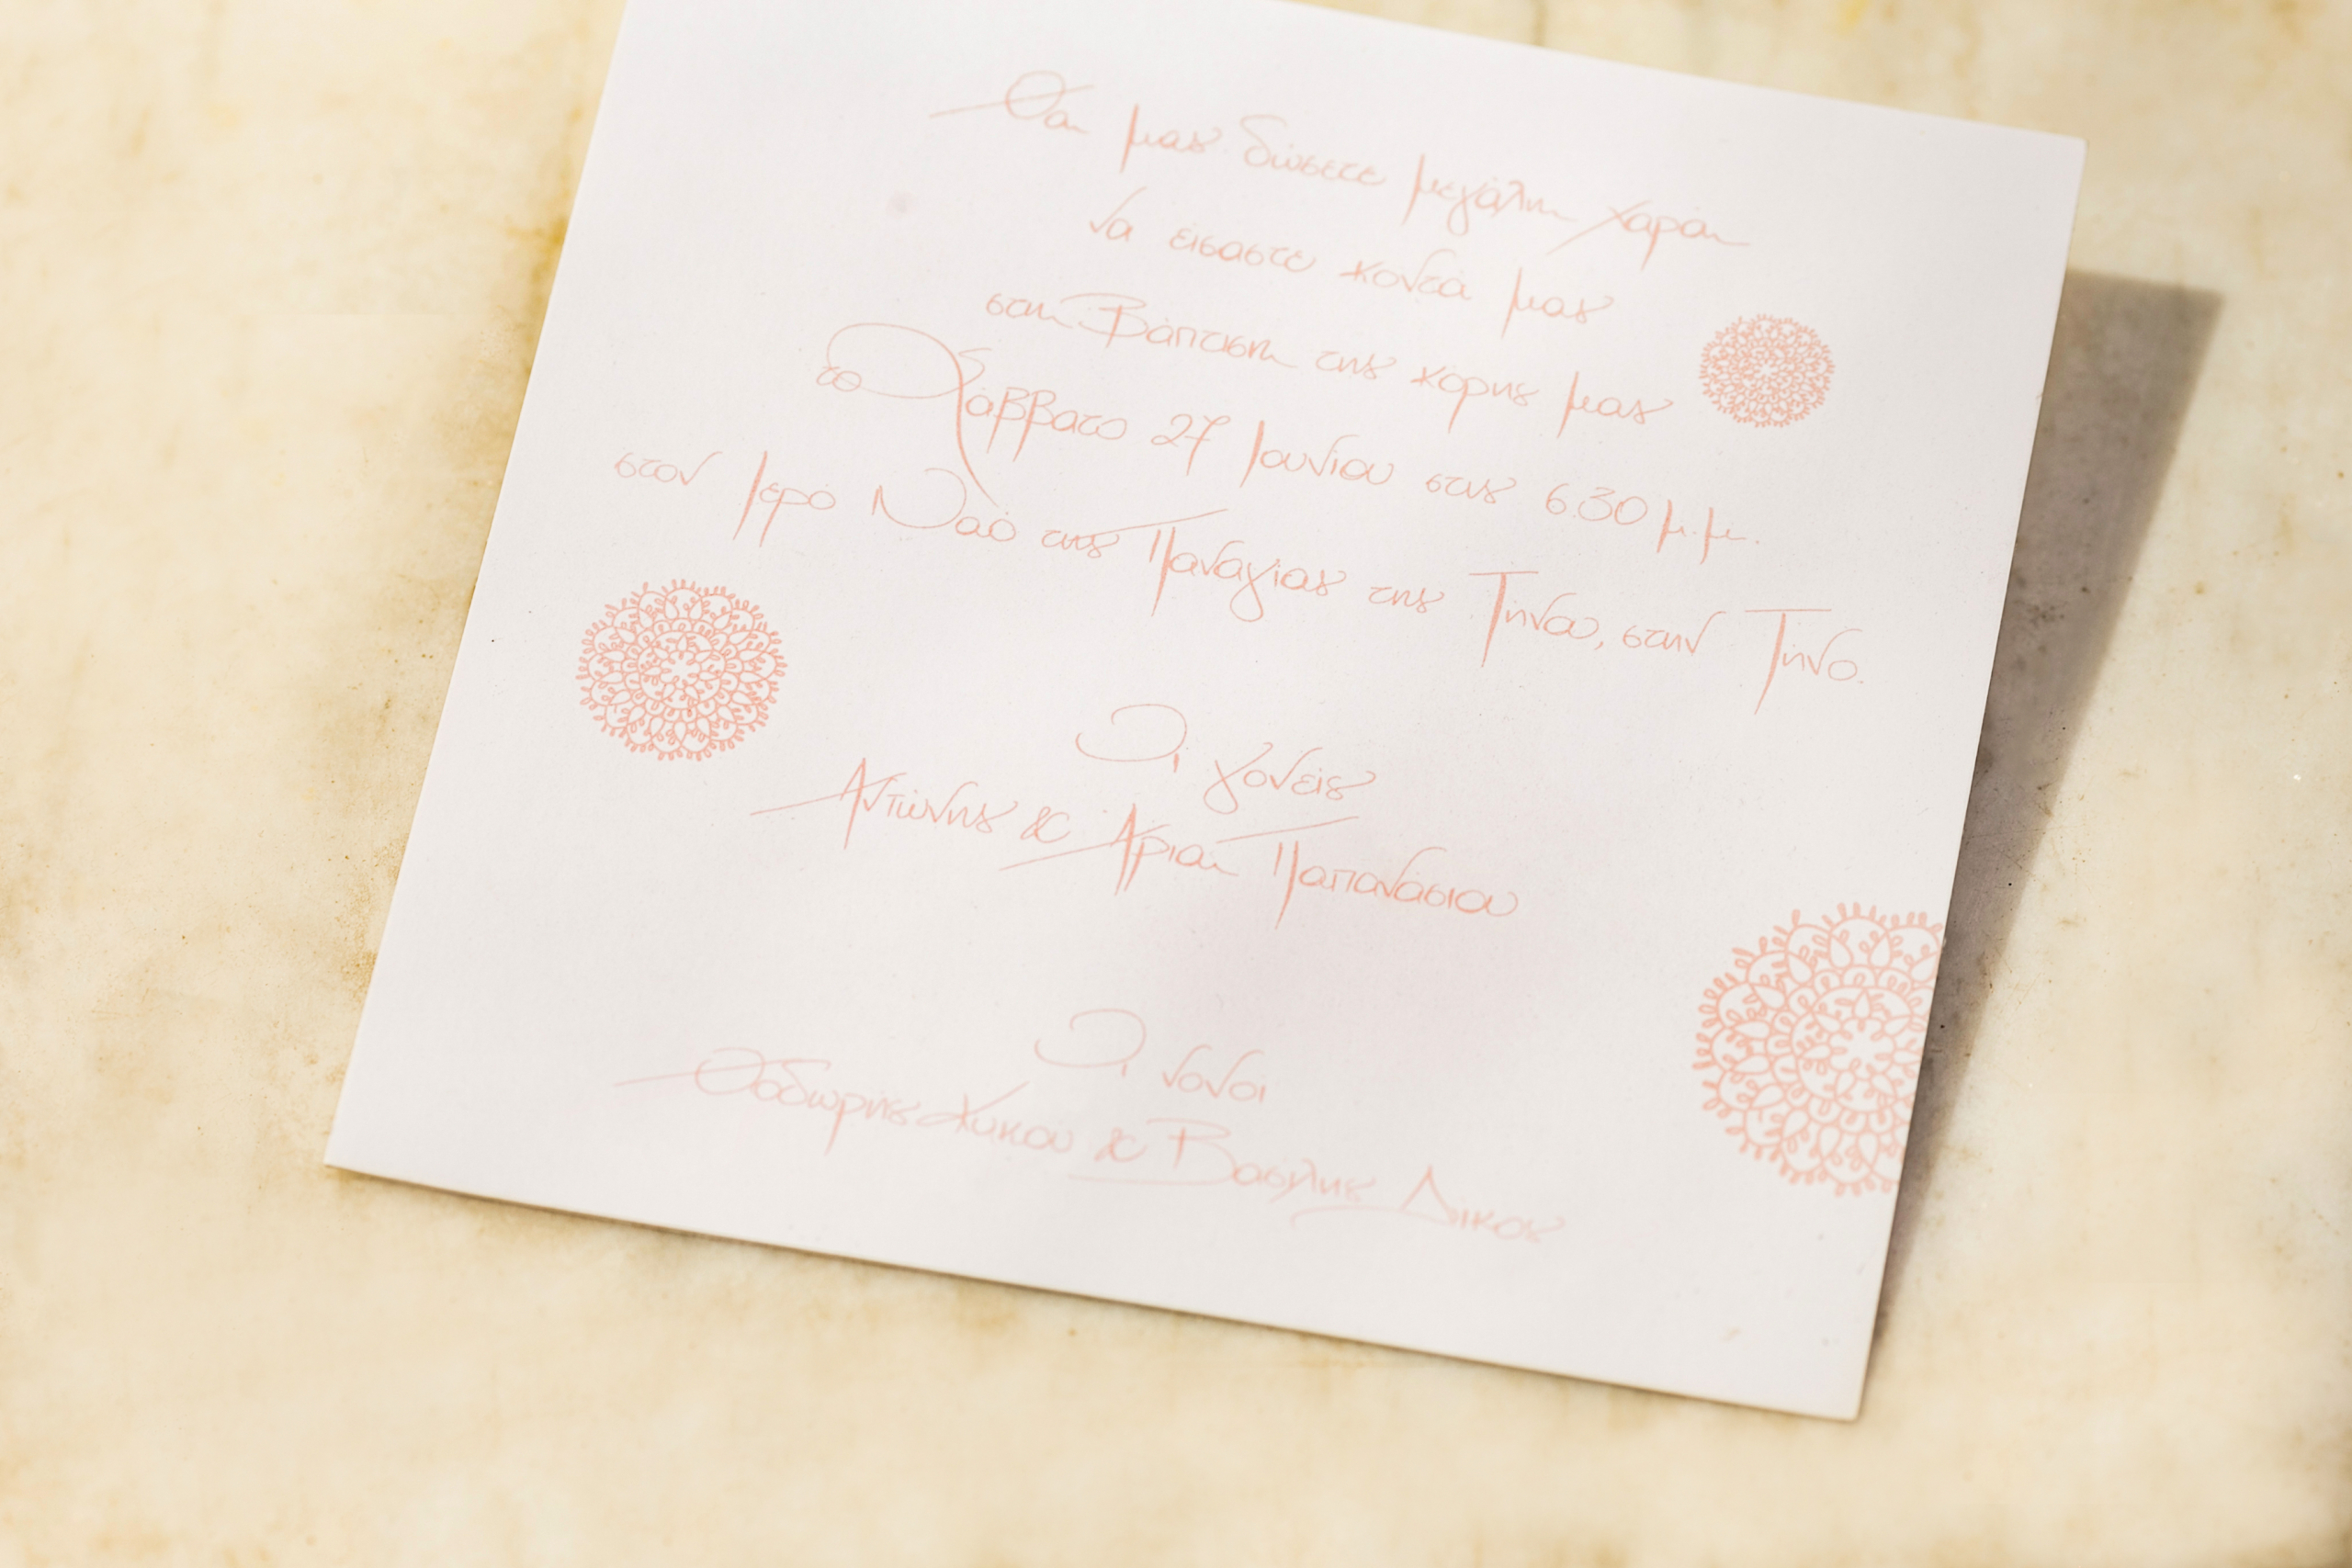 Θα μας δώσετε μεγάλη χαρά
να είσαστε κοντά μας
στη Βάπτιση της κόρης μας
το Σάββατο 27 Ιουνίου στις 6.30 μ.μ.
στον Ιερό Ναό της Παναγίας της Τήνου, στην Τήνο.
Οι γονείς
Αντώνης & Άρια Παπανάσιου
Οι νονοί
Θοδωρής & Βασίλης Δίκος